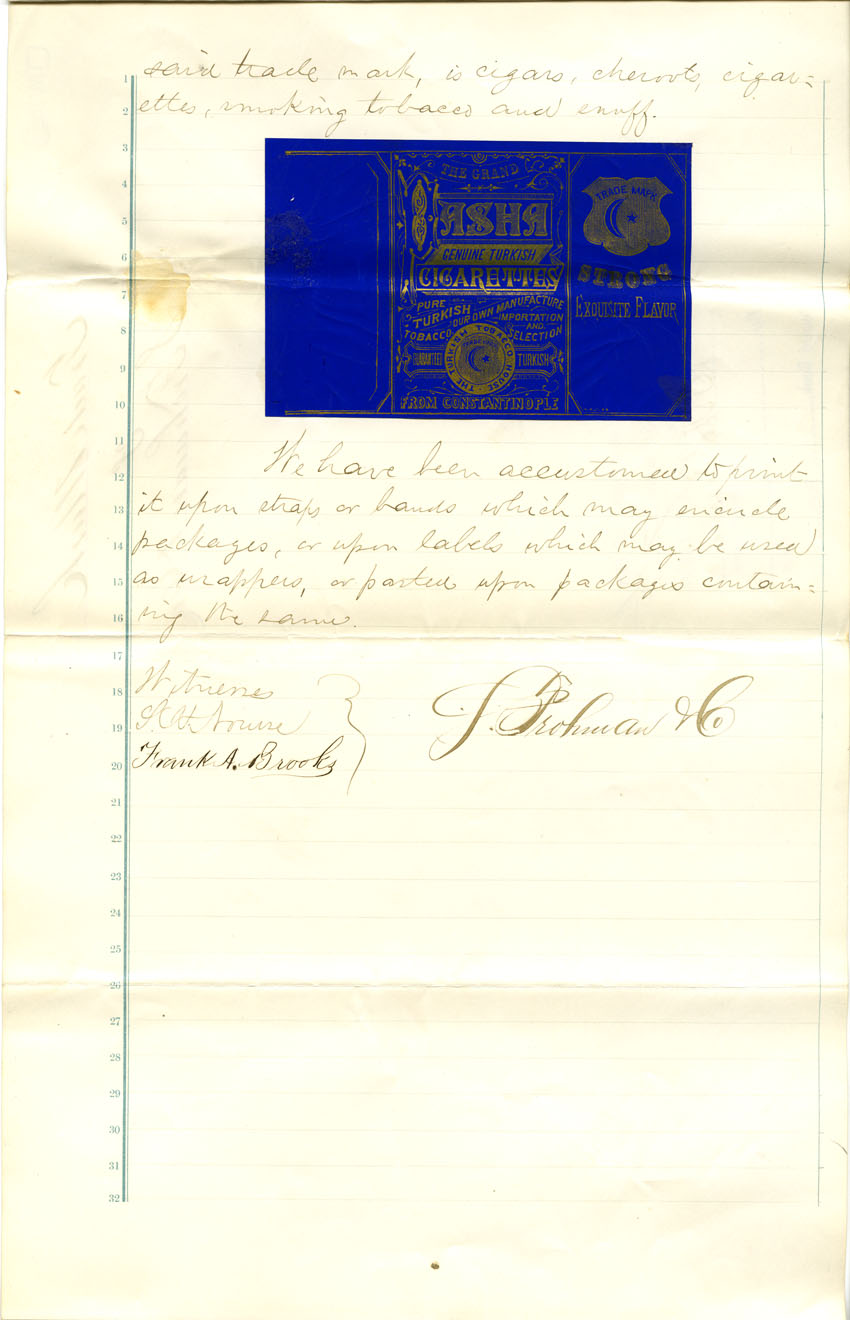 1
said trade mark, is cigars, cheroots, cigar=
2
ettes, smoking tobacco and snuff.
3
4
5
6
7
8
9
10
THE GRAND
PASHA
GENUINE TURKISH
CIGARETTES
PURE
TURKISH
TOBACCO
OUR OWN MANUFACTURE
IMPORTATION
AND
SELECTION
GUARANTEED
TURKISH
THE TURKISH TOBACCO HOUSE
FROM CONSTANTINOPLE
TRADE MARK
STRONG
EXQUISITE FLAVOR
11
We have been accustomed to print
12
it upon straps or bands which may encircle
13
packages, or upon labels which may be used
14
as wrappers, or pasted upon packages contain=
15
ing the same.
16
17
Witnesses
18
19
Frank A. Brooks
20
J. Prohman & Co
21
22
23
24
25
26
27
28
29
30
31
32